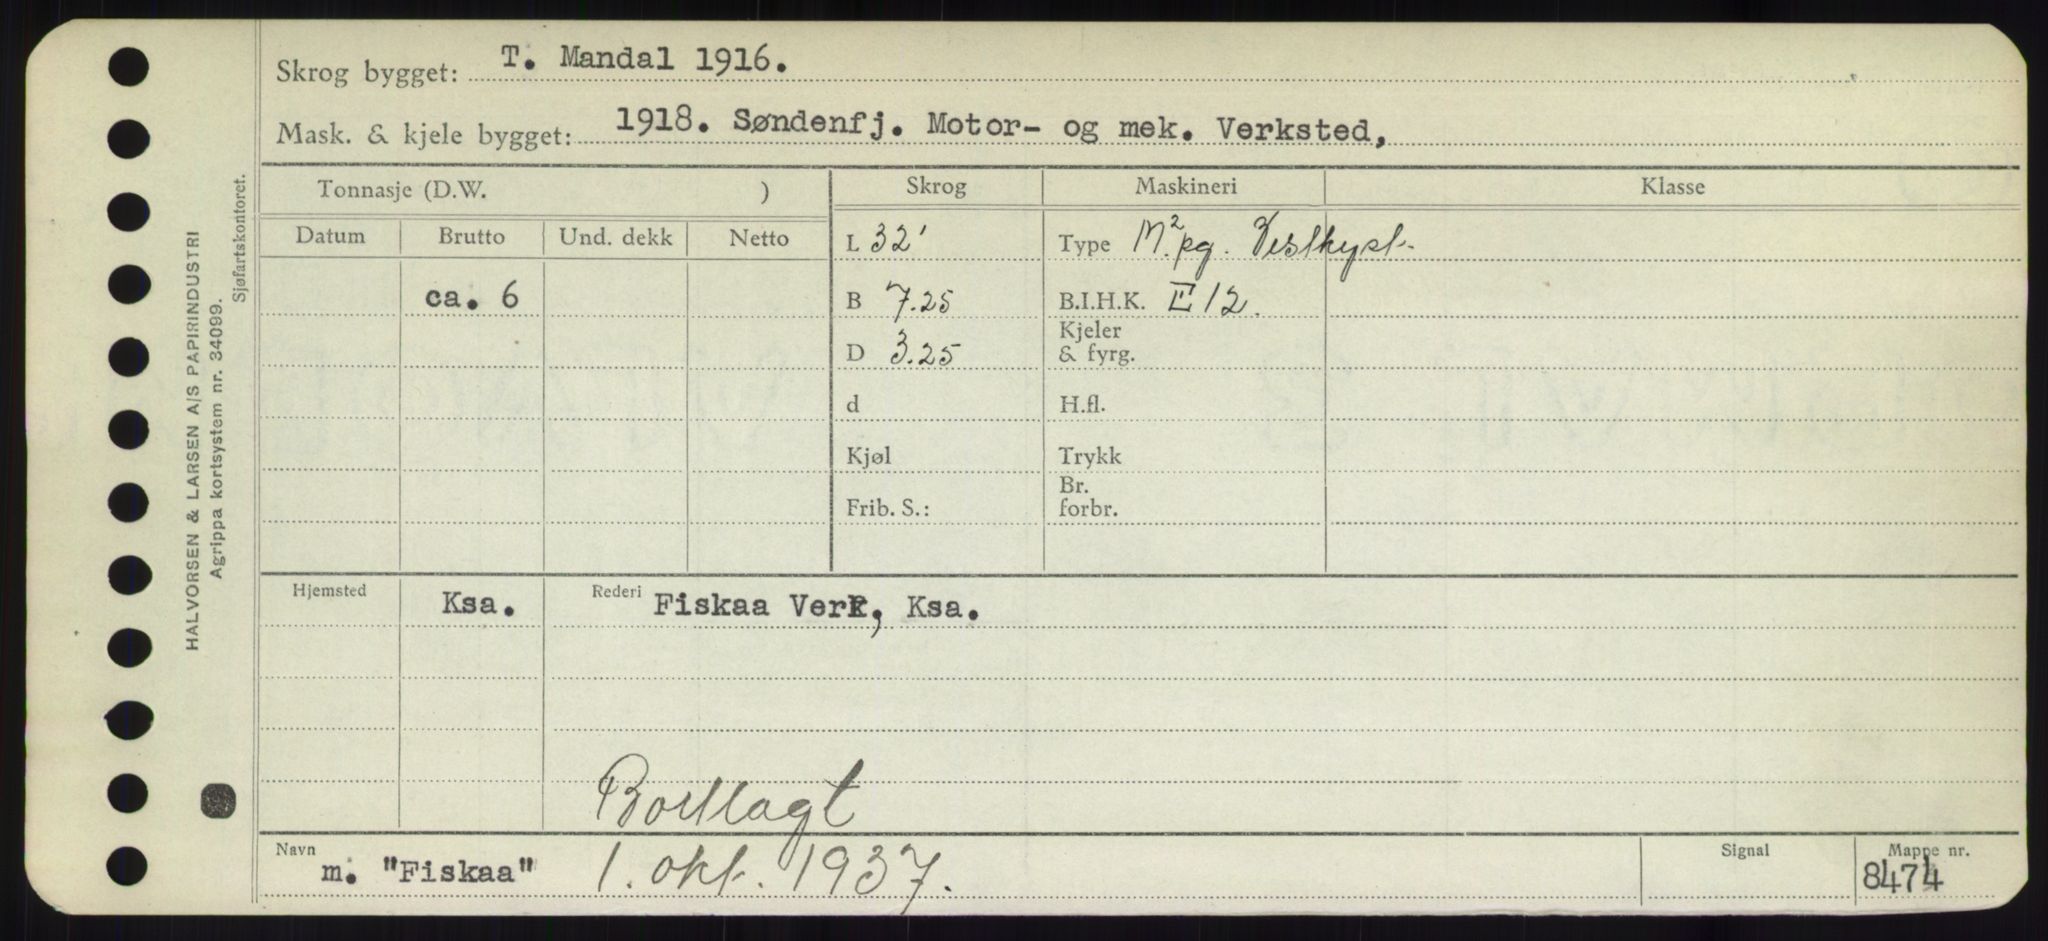 Skrog bygget: T. Mandal 1916.
Mask. & kjele bygget: 1918. Søndenfj. Motor- og mek. Verksted,
Tonnasje (D.W. )
Skrog
Maskineri
Klasse
Datum
Brutto
Und. dekk
Netto
L 32'
Type M.²pg. Vestkyst.
ca. 6
B 7.25
B.I.H.K. E 12.
D 3.25
Kjeler
& fyrg.
d
H.fl.
Kjøl
Trykk
Frib. S.:
Br.
forbr.
Hjemsted
Ksa.
Rederi
Fiskaa Verk, Ksa.
Bortlagt
1. okt. 1937.
Navn
m. "Fiskaa"
Signal
Mappe nr.
8474
HALVORSEN & LARSEN A/S PAPIRINDUSTRI
Agrippa kortsystem nr. 34099.
Sjøfartskontoret.